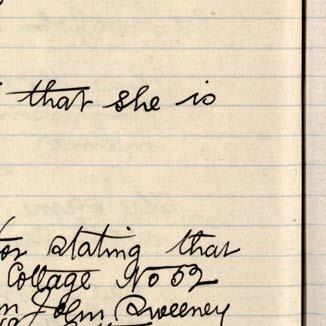 that she is
stating that
Cottage No 52
John Sweeney